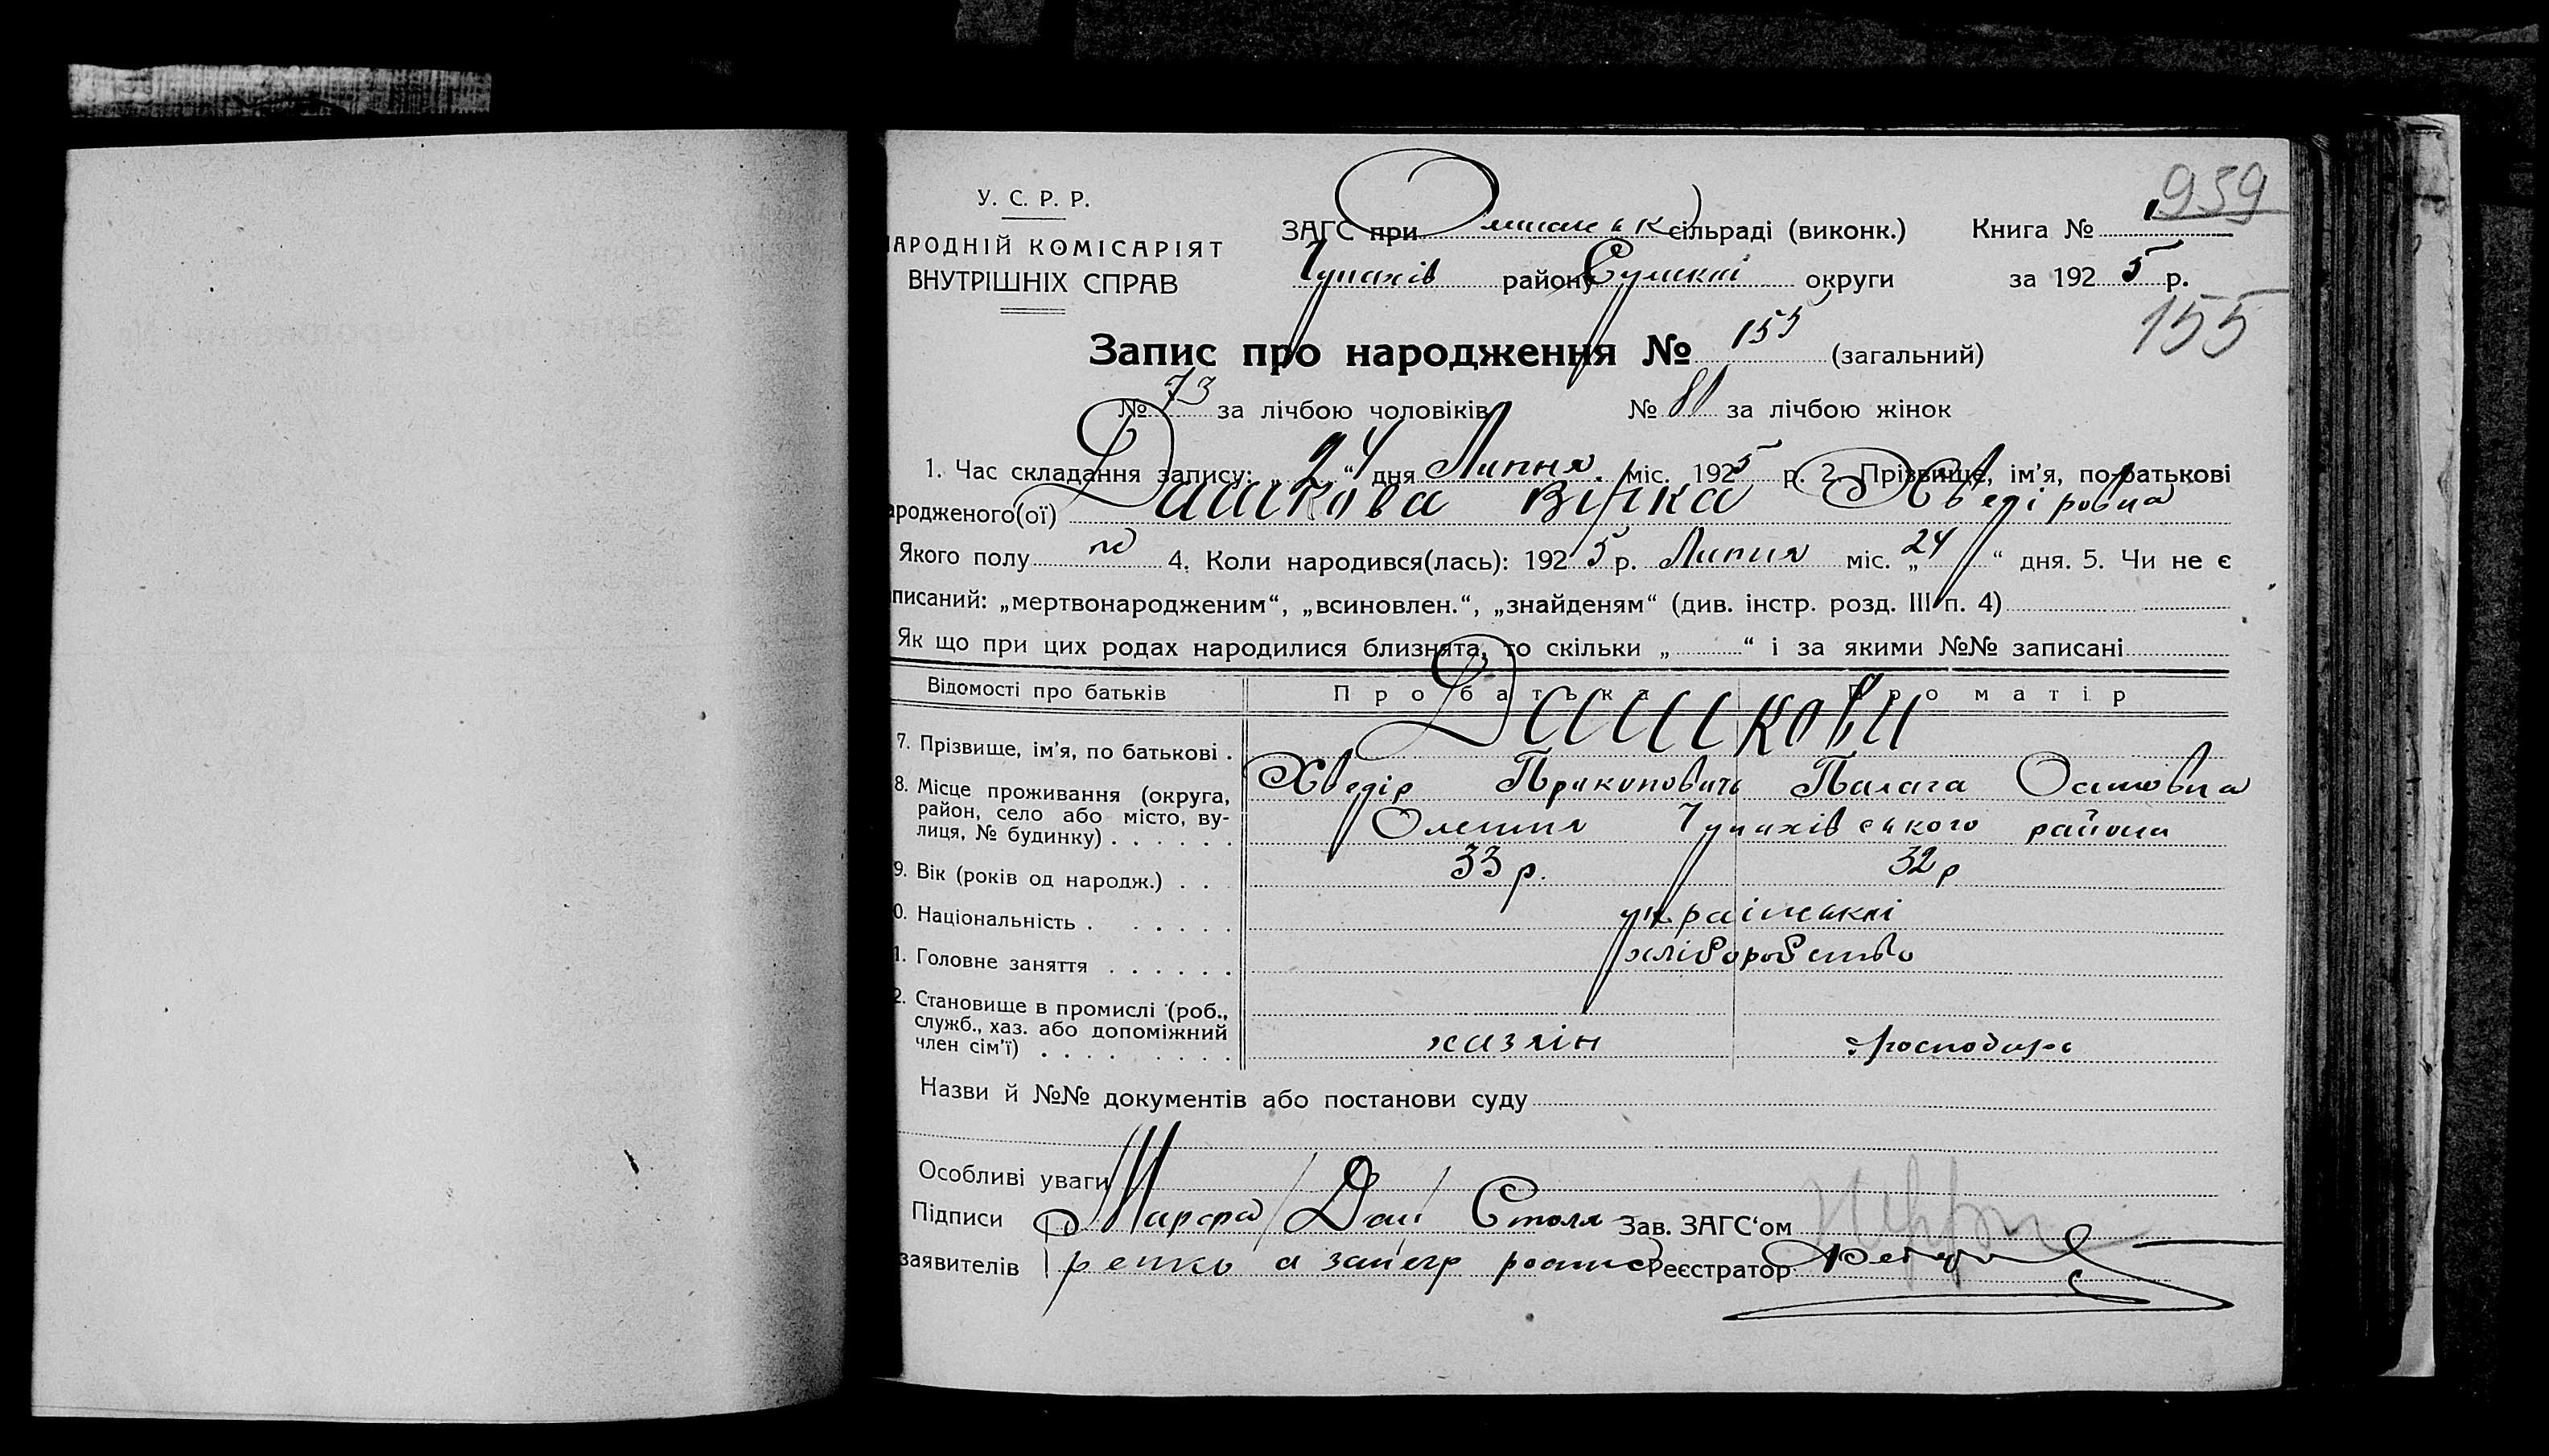 959
У. С. Р. Р.
НАРОДНІЙ КОМІСАРІЯТ
ВНУТРІШНІХ СПРАВ
ЗАГС при сільраді (виконк.) Книга № 1
Чупахів району Сумскої округи за 1925 р.
155
Запис про народження № 155 (загальний)
№ 73 за лічбою чоловіків № 81 за лічбою жінок
1. Час складання запису: „24“ дня Липня міс. 1925 р. 2. Прізвище, ім'я, по-батькові
ародженого(ої) Дашкова Вірка Хведіровна
Якого полу 4. Коли народився(лась): 1925 р. Липня міс. „24“ дня. 5. Чи не є
писаний: „мертвонародженим“, „всиновлен.“, „знайденям“ (див. інстр. розд. III п. 4)
Як що при цих родах народилися близнята, то скільки „ “ і за якими №№ записані
Відомості про батьків Про батька Про матір
7. Прізвище, ім'я, по батькові . Дашкови
Хведір Прикипович Палага Осиповна
8. Місце проживання (округа, район, село або місто, вулиця, № будинку) . . . . . . Олешня Чупахівського района
9. Вік (років од народж.) . . 33 р. 32 р
0. Національність . . . . . . українскі
1. Головне заняття . . . . . . хліборобство
2. Становище в промислі (роб., служб., хаз. або допоміжний член сім'ї) . . . . . . . . хазяін господарь
Назви й №№ документів або постанови суду
Особливі уваги
Підписи Марфа Даш Столя- Зав. ЗАГС'ом
заявителів ренко а за негр роспис Реєстратор